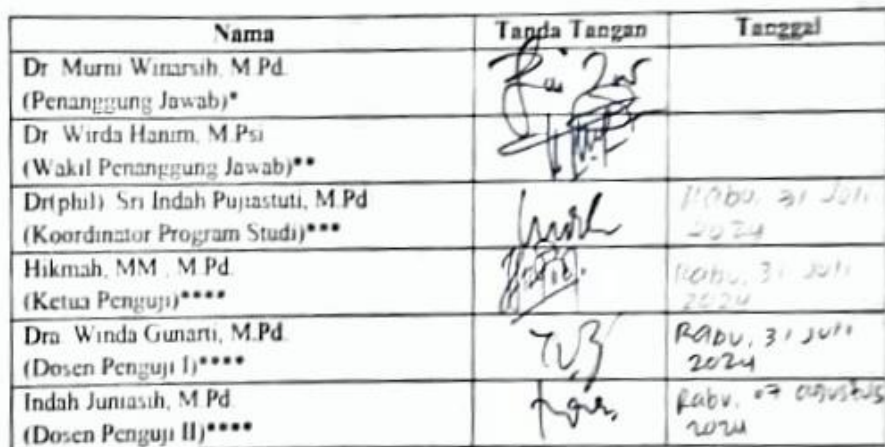 Nama Tanda Tangan Tanggal
Dr Murni Winarsih, M.Pd.
(Penanggung Jawab)*
Dr Wirda Hanim, M.Psi
(Wakil Penanggung Jawab)**
Dr(phil) Sri Indah Pujiastuti, M.Pd
(Koordinator Program Studi)***
Rabu, 31 Juli
2024
Hikmah, MM , M.Pd.
(Ketua Penguji)****
Rabu, 31 Juli
2024
Dra Winda Gunarti, M.Pd.
(Dosen Penguji I)****
Rabu, 31 Juli
2024
Indah Juniasih, M.Pd
(Dosen Penguji II)****
Rabu, 07 agustus
2024